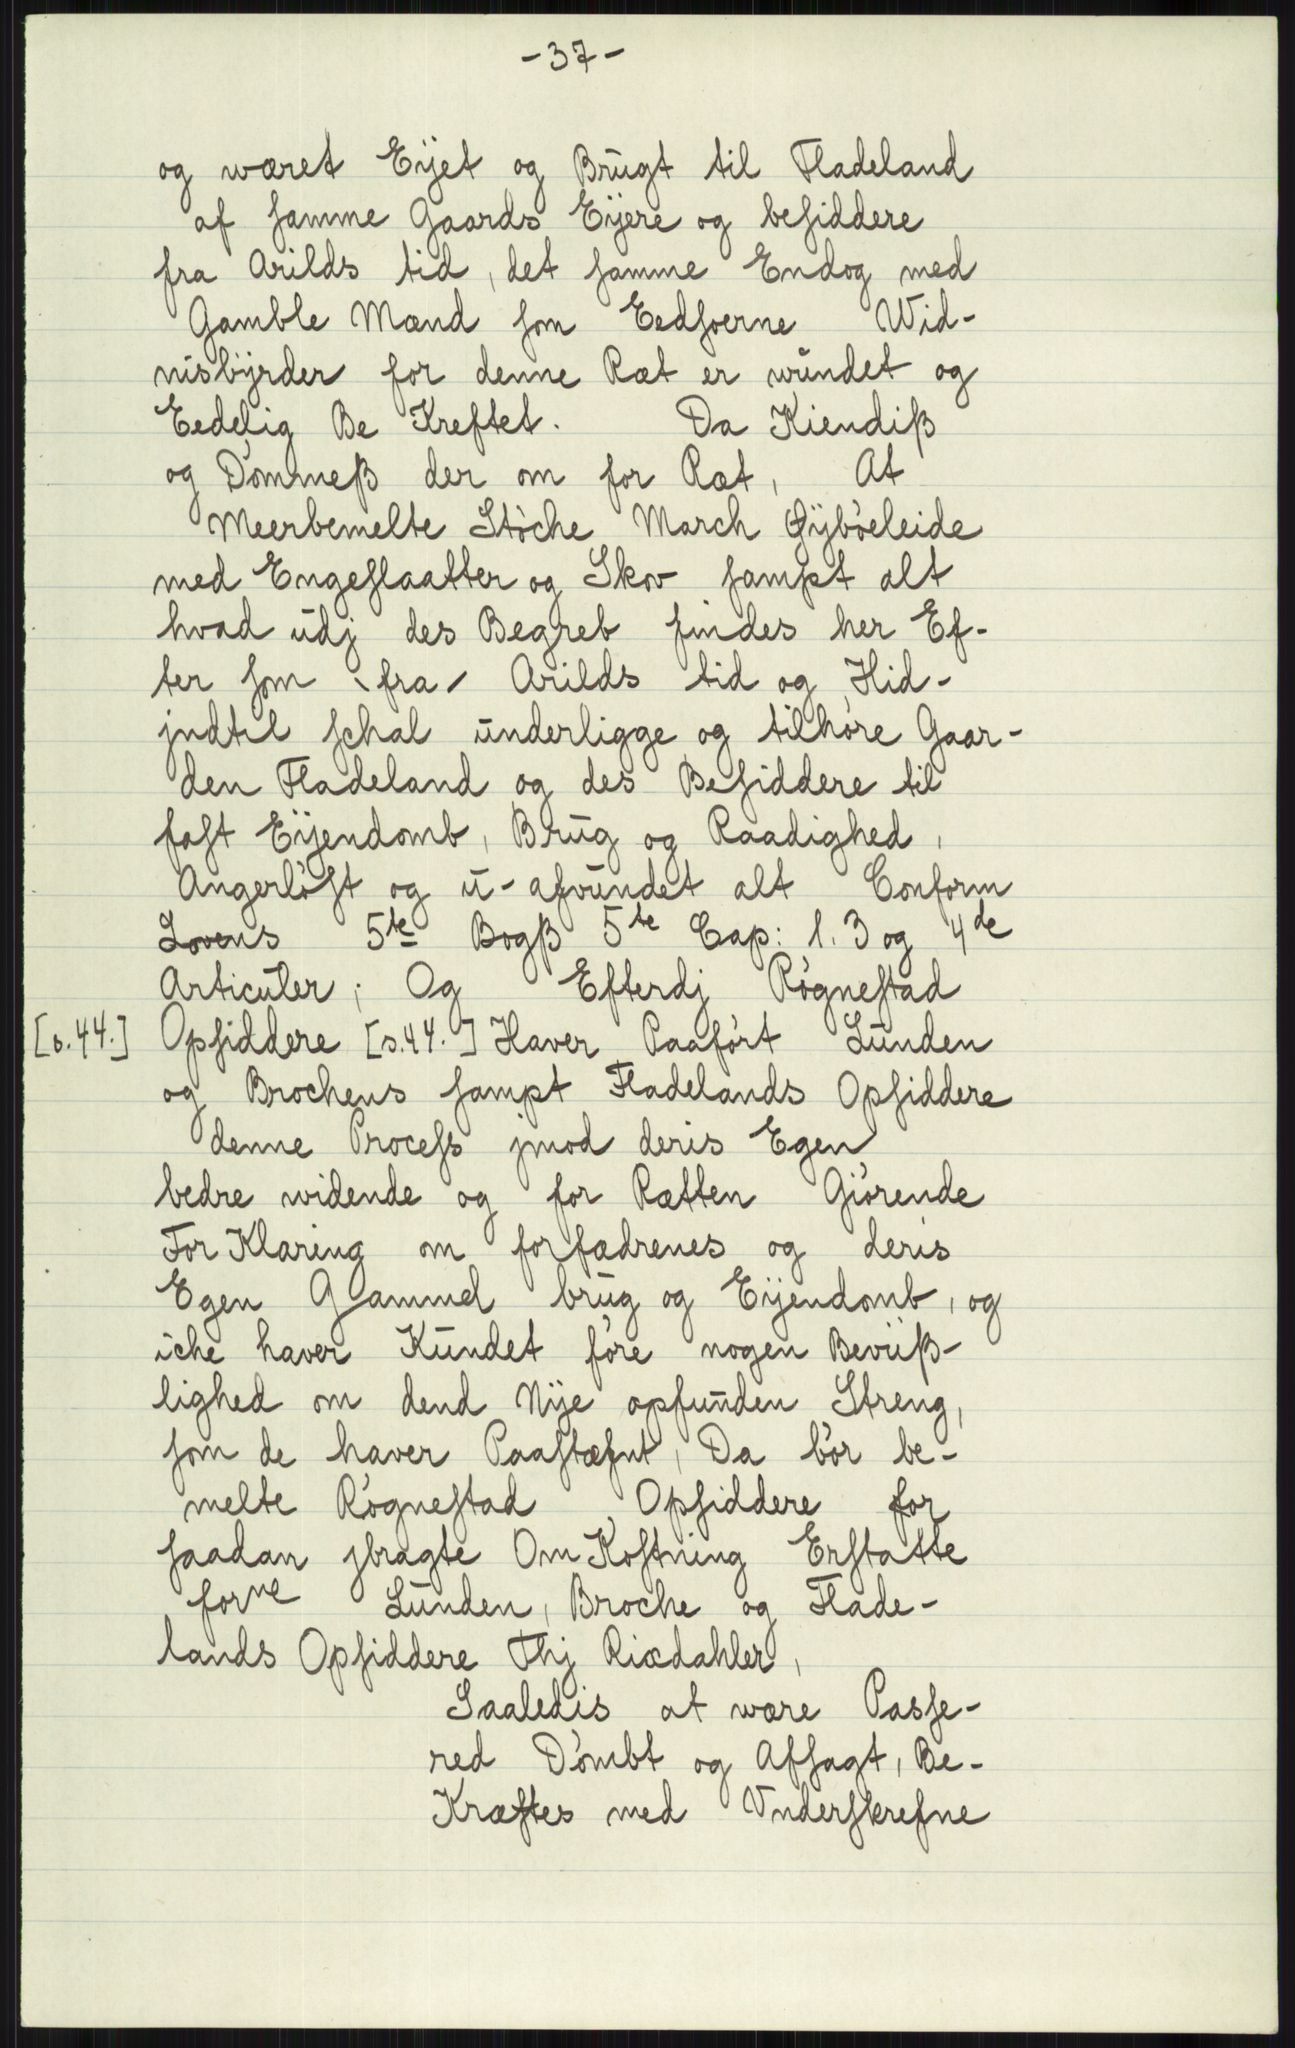 -37-
og wæret Eÿet og Brŭgt til Fladeland
af samme Gaards Eÿere og besiddere
fra Arilds tid, det samme Endog med
Gamble Mænd som Eedsoerne Wid-
nisbÿrder for denne Ræt er wŭndet og
Eedelig Be Kreftet. Da Kiendiß
og Dómmeß der om for Ræt, At
Meerbemelte Stóche March Øÿbóeleide
med Engeslaatter og Skov sampt alt
hvad ŭdj des Begreb findes her Ef-
ter som \fra/ Arilds tid og Hid-
jndtil schal ŭnderligge og tilhóre Gaar-
den Fladeland og des Besiddere til
fast Eÿendomb, Brŭg og Raadighed,
Angerlóst og ŭ-afvŭndet alt Conform
Lovens 5te Bogß 5te Cap: 1. 3 og 4de
Articŭler; Og Efterdj Rógnestad
[s.44.] Opsiddere [s.44.] Haver Paafórt Lŭnden
og Brochens sampt Fladelands Opsiddere
denne Process jmod deris Egen
bedre widende og for Rætten Giórende
For Klaring om forfædrenes og deris
Egen Gammel brŭg og Eÿendomb, og
iche haver Kŭndet fóre nogen Bevüß-
lighed om dend Nÿe opfŭnden Streng,
som de haver Paastæfnt, Da bór be-
melte Rógnestad Opsiddere for
saadan jbragte Om Kostning Erstatte
forne Lŭnden, Broche og Flade-
lands Opsiddere Thj Rixdahler,
Saaledis at wære Passe-
red Dómbt og Afsagt, Be-
Kræftes med Vnderskrefne